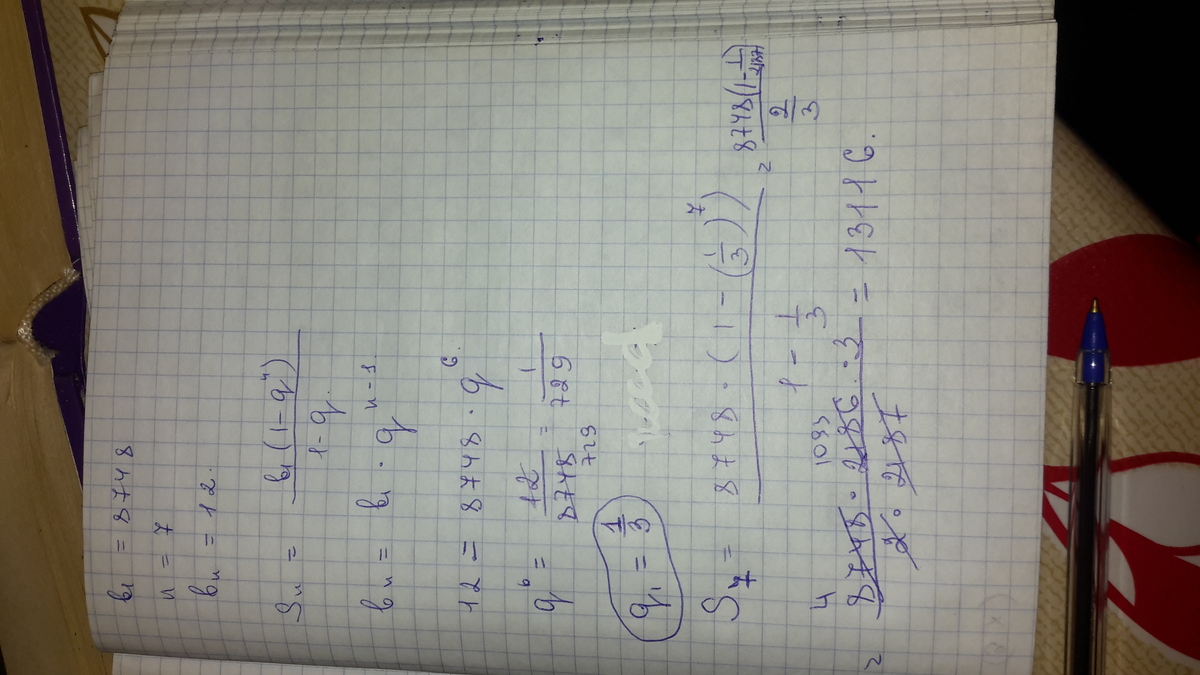 b₁ = 8748
n = 7
bₙ = 12.
Sₙ = b₁(1-qⁿ) / 1-q.
bₙ = b₁ · q ⁿ⁻¹
12 = 8748 · q⁶.
q⁶ = 12 / 8748 = 1 / 729
729
q₁ = 1/3
S₇ = 8748 · (1 - (1/3)⁷) / 1 - 1/3 = 8748(1 - 1/2187) / 2/3
4 1093
= 8748 · 2186 · 3 / 2 · 2187 = 13116.